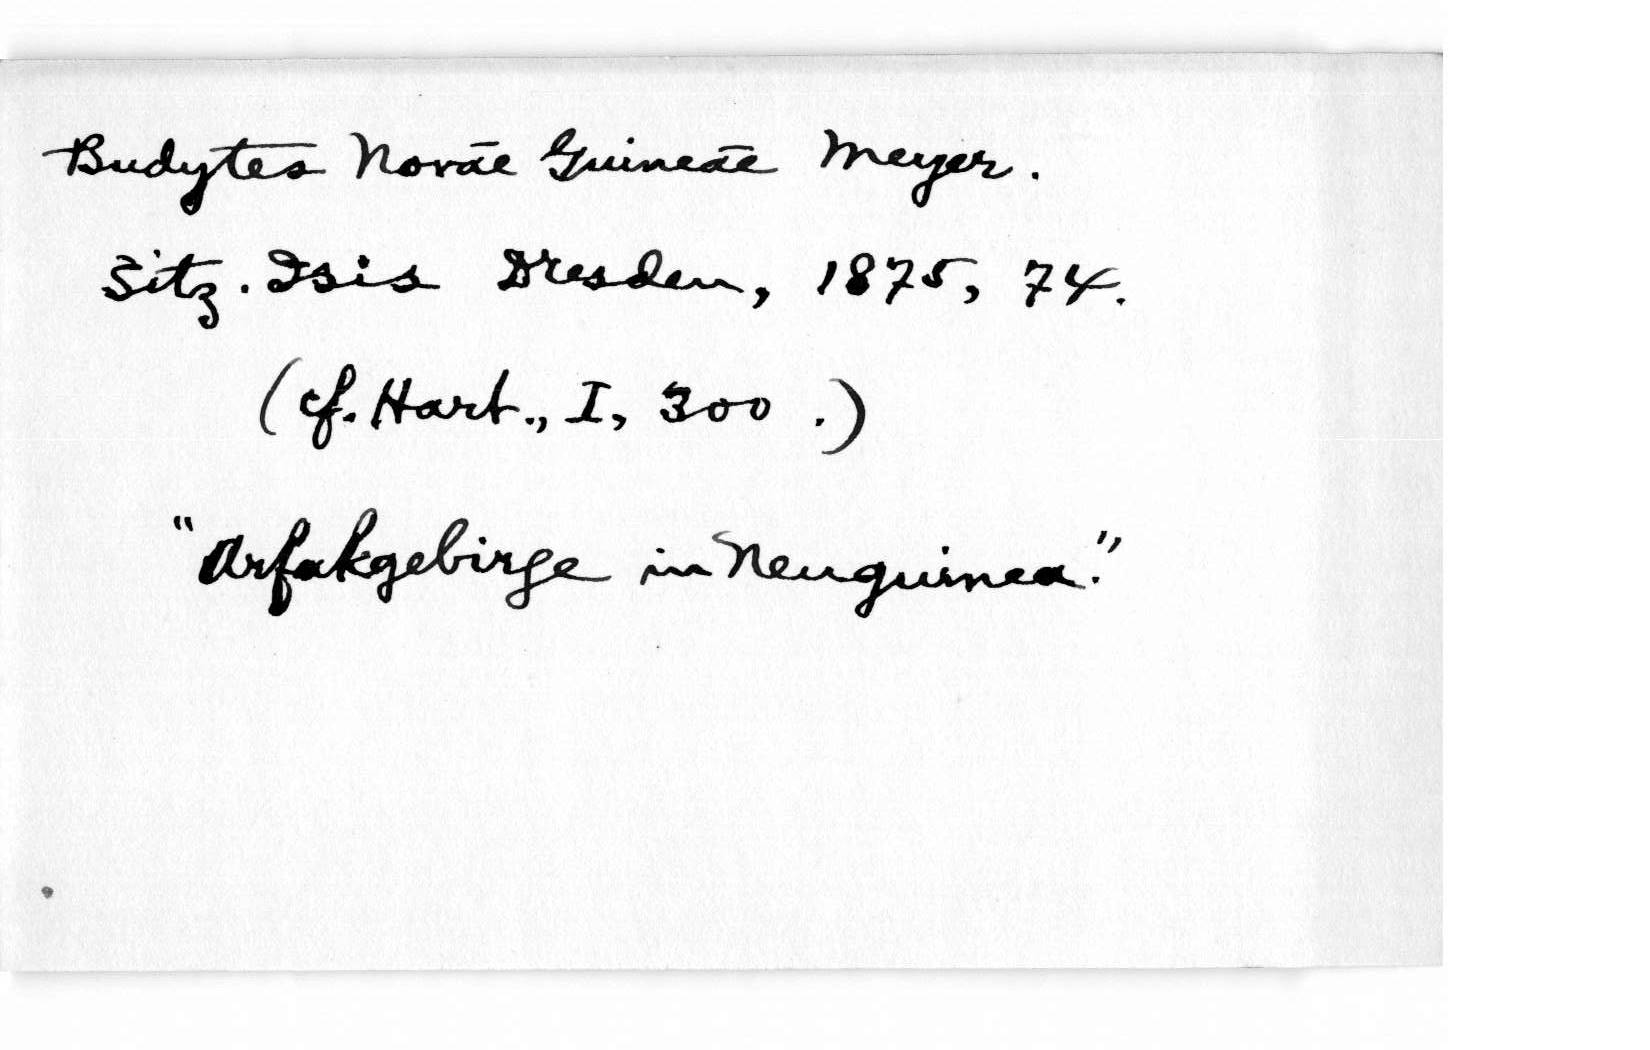 Budytes Novāe Guineāe Meyer.
Sitz. Isis Dresden, 1875, 74.
(cf. Hart., I, 300.)
"Arfakgebirge in Neuguinea."